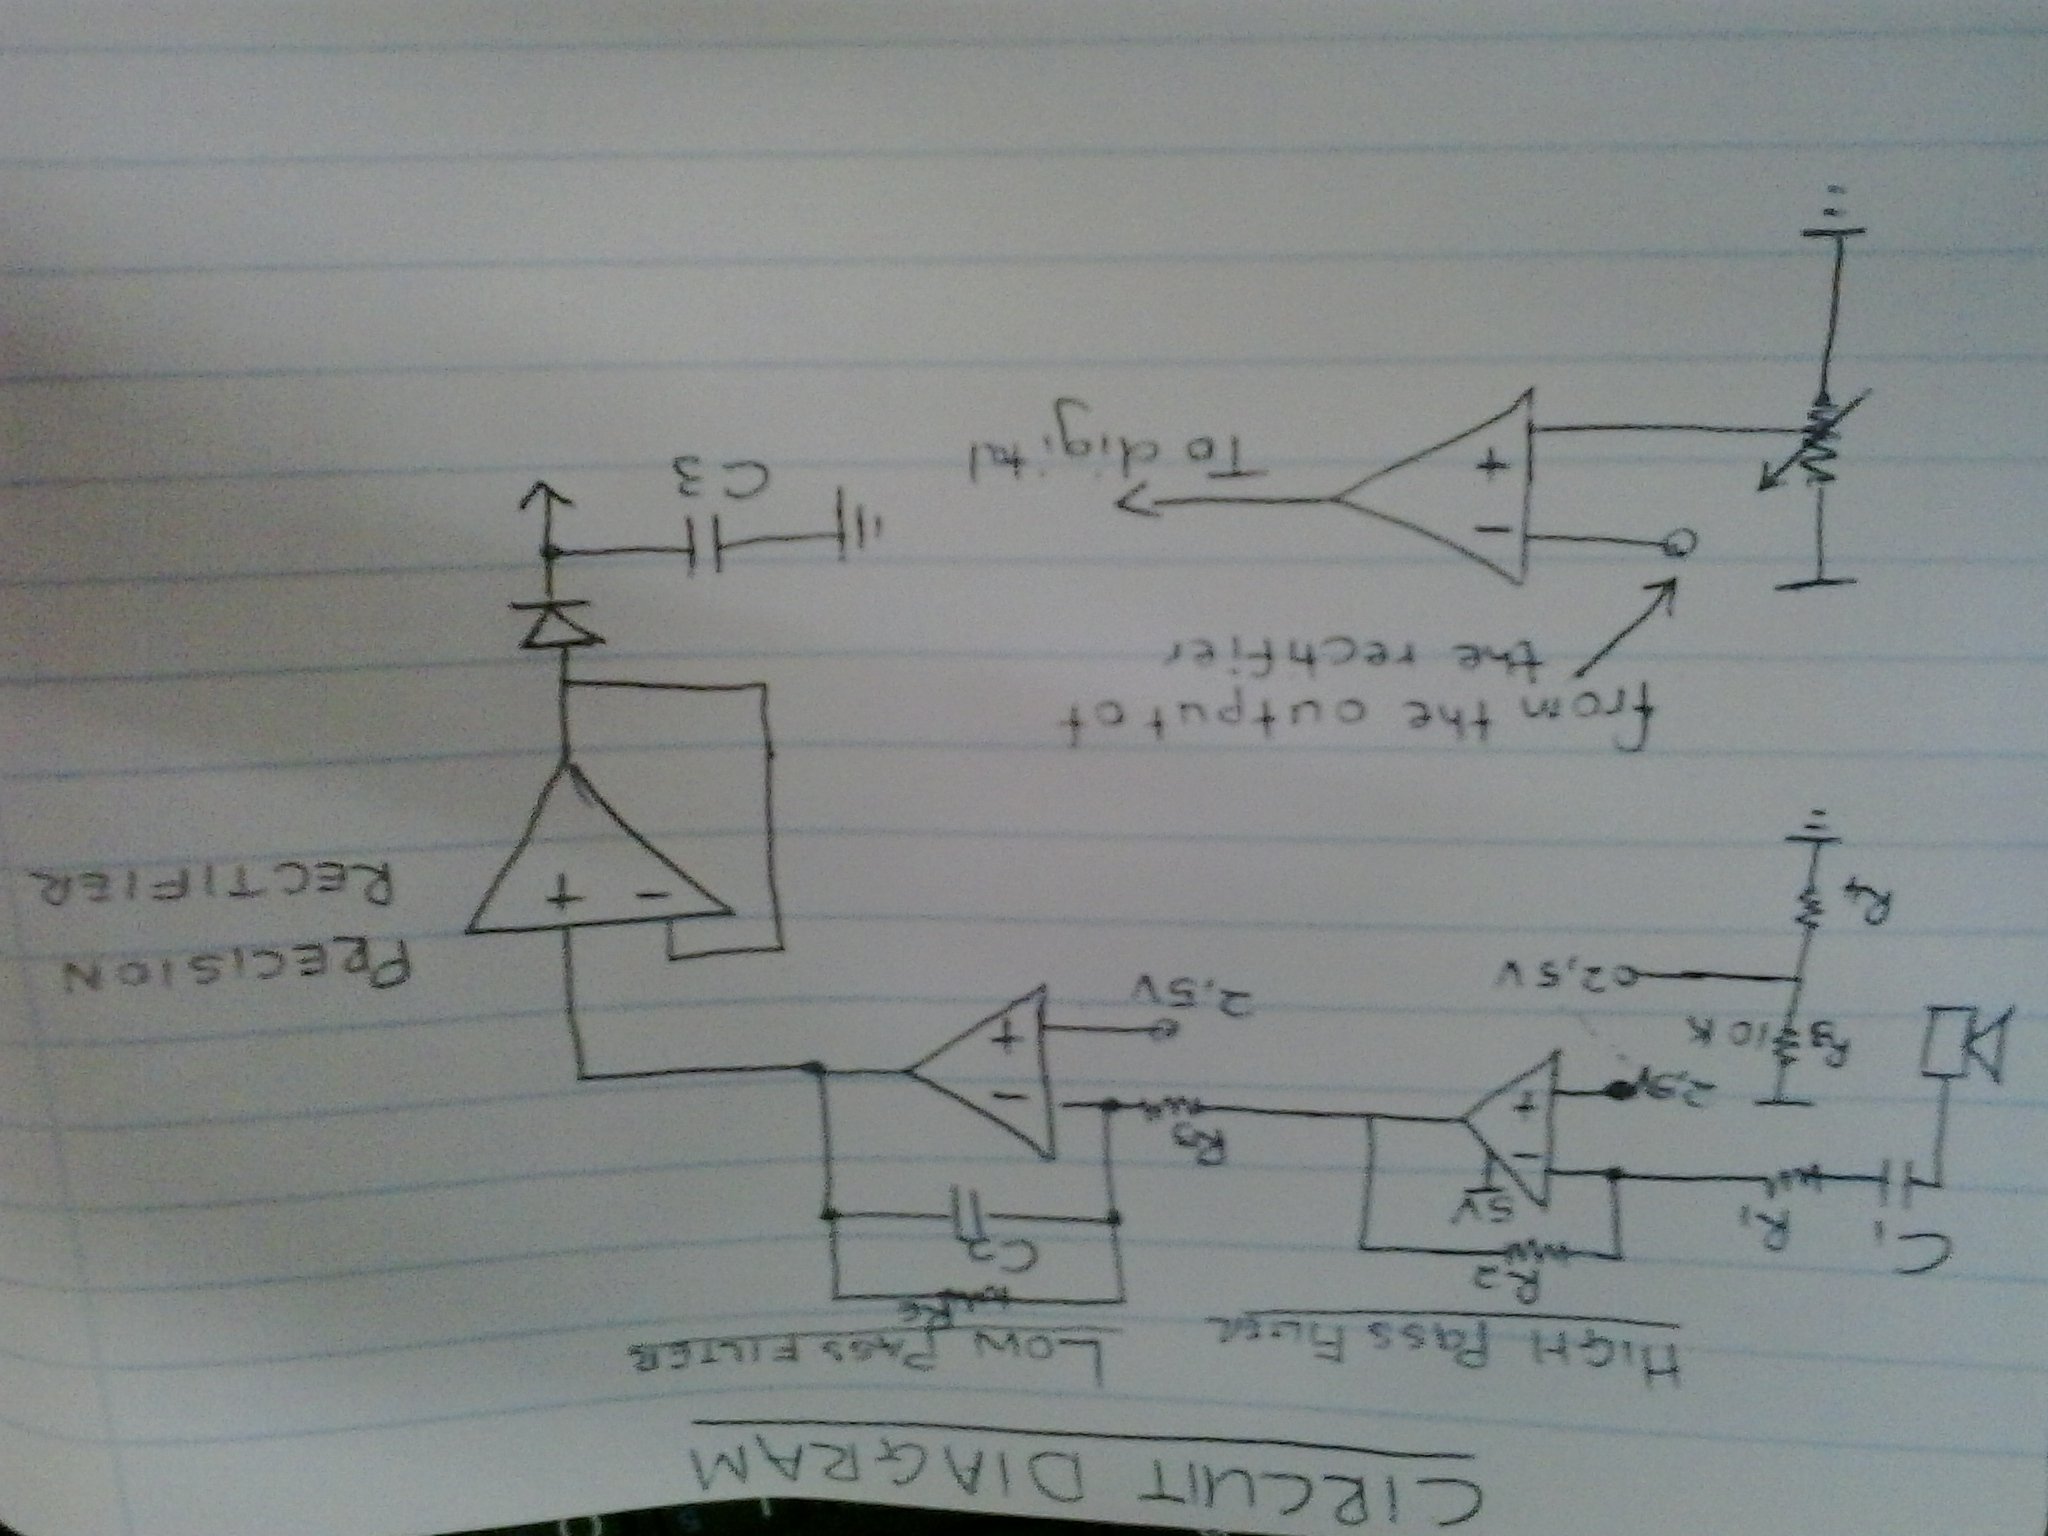 CIRCUIT DIAGRAM
HIGH PASS FILTER
LOW PASS FILTER
R2
R6
C1
R1
5V
C2
R5
2,5V
2.5V
R3
10K
2,5V
R4
PRECISION
RECTIFIER
from the output of
the rectifier
To digital
C3
+
-
+
-
+
-
+
-